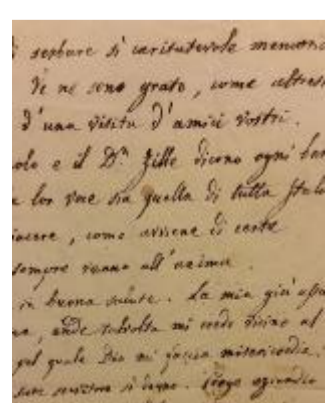 i serbare sì caritatevole memoria
Ve ne sono grato, come altresì
d'una visita d'amici vostri.
olo e il D.r Zille dicono ogni ben
lor voce sia quella di tutta Itali
iacere, come avviene di certe
sempre vanno all'anima
in buona salute. La mia già
onde talvolta mi credo vicino al
pel quale Dio mi faccia misericordia.
servitore